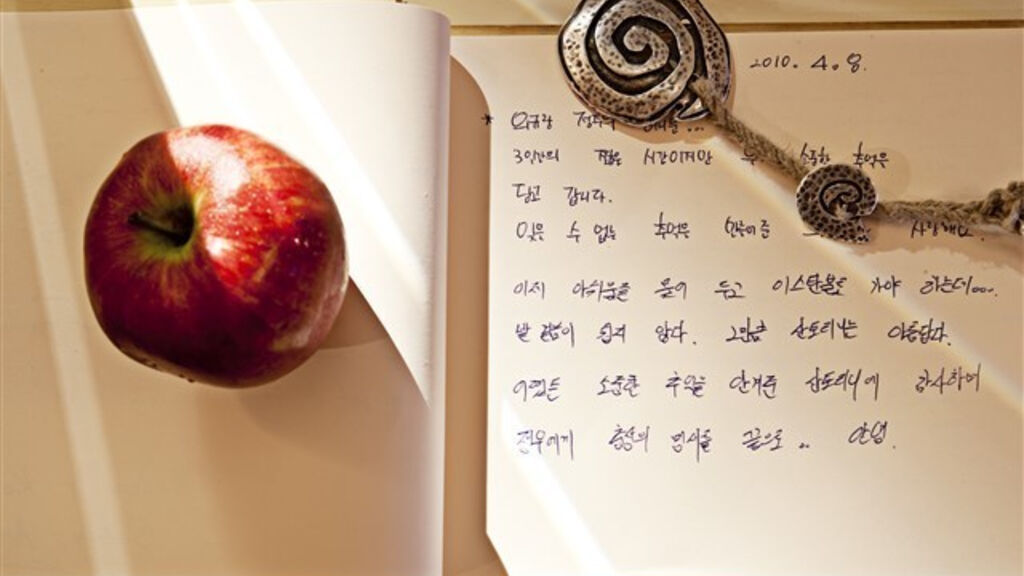 2010. 4. 8.
*
3일간의 짧은 시간이지만 소중한 추억을
담고 갑니다.
잊을 수 없는 추억을 사랑해요.
이제 아쉬움을 묻어 두고 이스탄불로 가야 하는데...
발 걸음이 쉽지 않다. 그만큼 산토리니는 아름답다.
어쨌든 소중한 추억을 안겨준 산토리니에 감사하며
전우에게 충성의 인사를 끝으로.. 안녕.